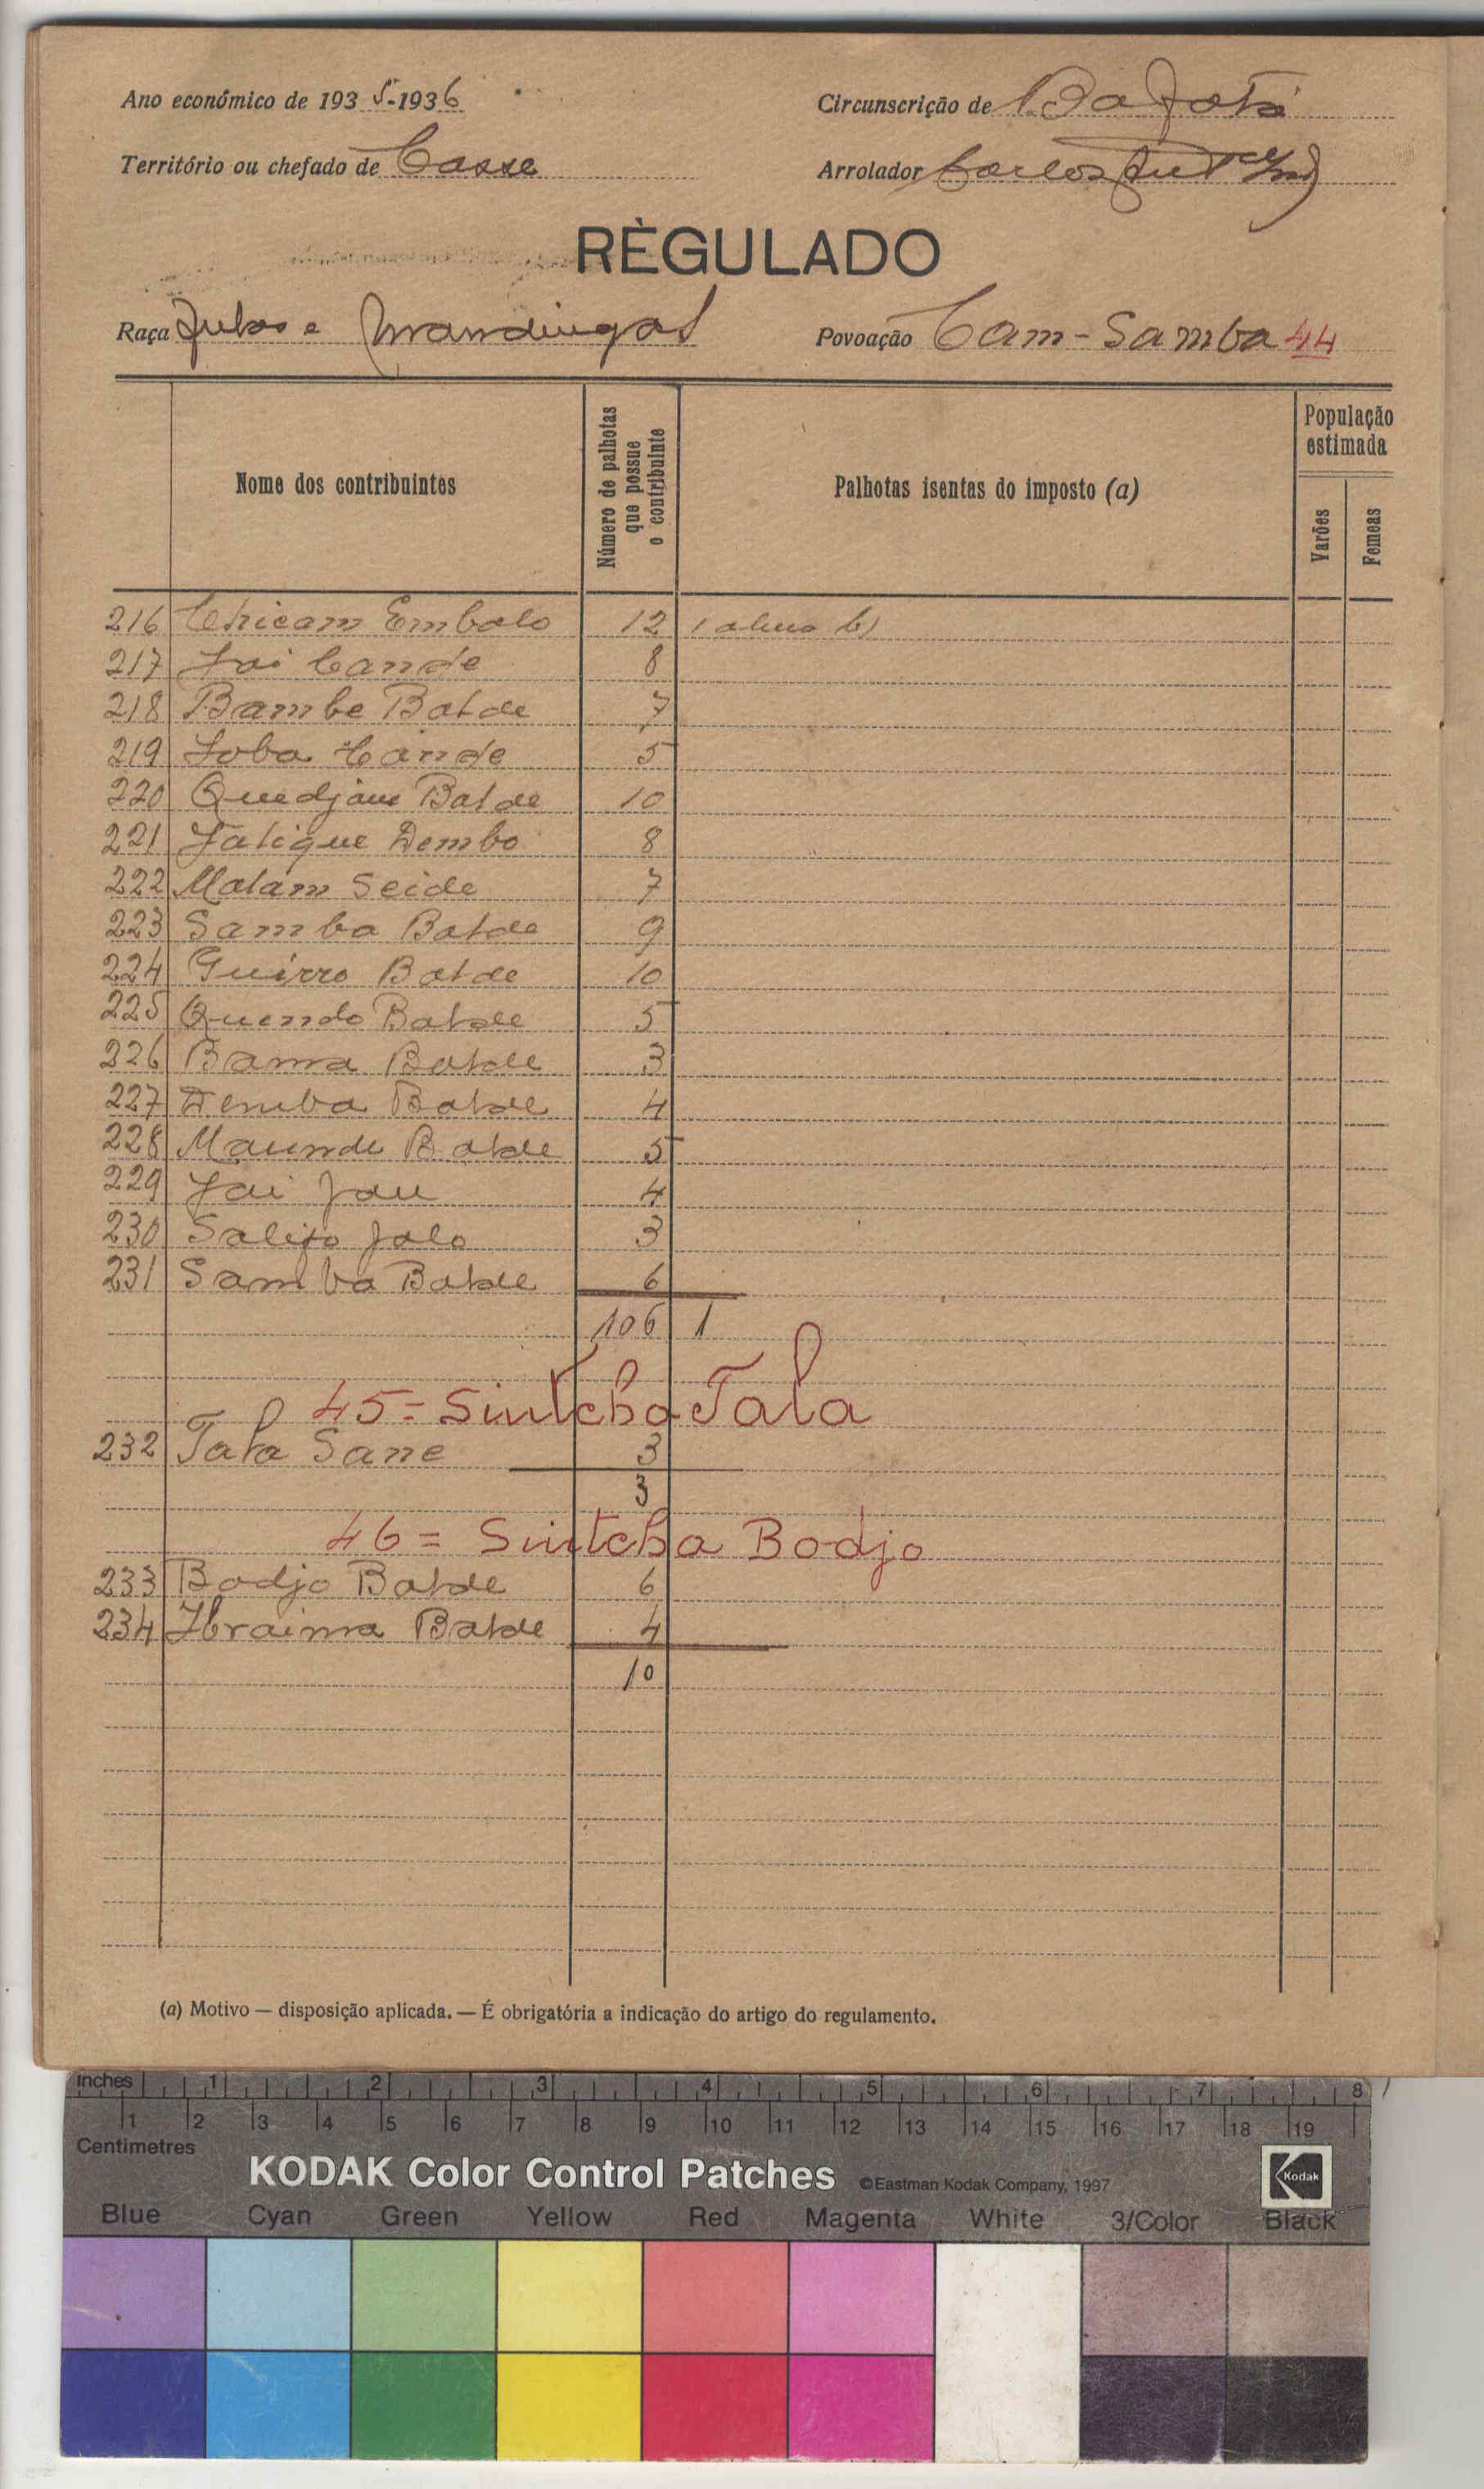 Ano económico de 1935-1936
Circunscrição de Bafatá
Território ou chefado de Casse
Arrolador Carlos
RÈGULADO
Raça Fulas e Mandingas
Povoação Cam-Samba 44
Nome dos contribuintes
Número de palhotas que possue o contribuinte
Palhotas isentas do imposto (a)
População estimada
Varões
Femeas
216 Chicam Embalo 12 1 alinea b)
217 Jai Cande 8
218 Bambe Balde 7
219 Joba Cande 5
220 Quedjam Balde 10
221 Fatique Dembo 8
222 Malam Seide 7
223 Samba Balde 9
224 Guirro Balde 10
225 Quendo Balde 5
226 Bama Balde 3
227 Demba Balde 4
228 Maunde Balde 5
229 Jai Jau 4
230 Salifo Jalo 3
231 Samba Balde 6
106 1
45= Sintcha Tala
232 Tala Sane 3
3
46= Sintcha Bodjo
233 Bodjo Balde 6
234 Ibraima Balde 4
10
(a) Motivo — disposição aplicada. — É obrigatória a indicação do artigo do regulamento.
inches 1 2 3 4 5 6 7 8
1 2 3 4 5 6 7 8 9 10 11 12 13 14 15 16 17 18 19
Centimetres
KODAK Color Control Patches ©Eastman Kodak Company, 1997 Kodak
Blue Cyan Green Yellow Red Magenta White 3/Color Black